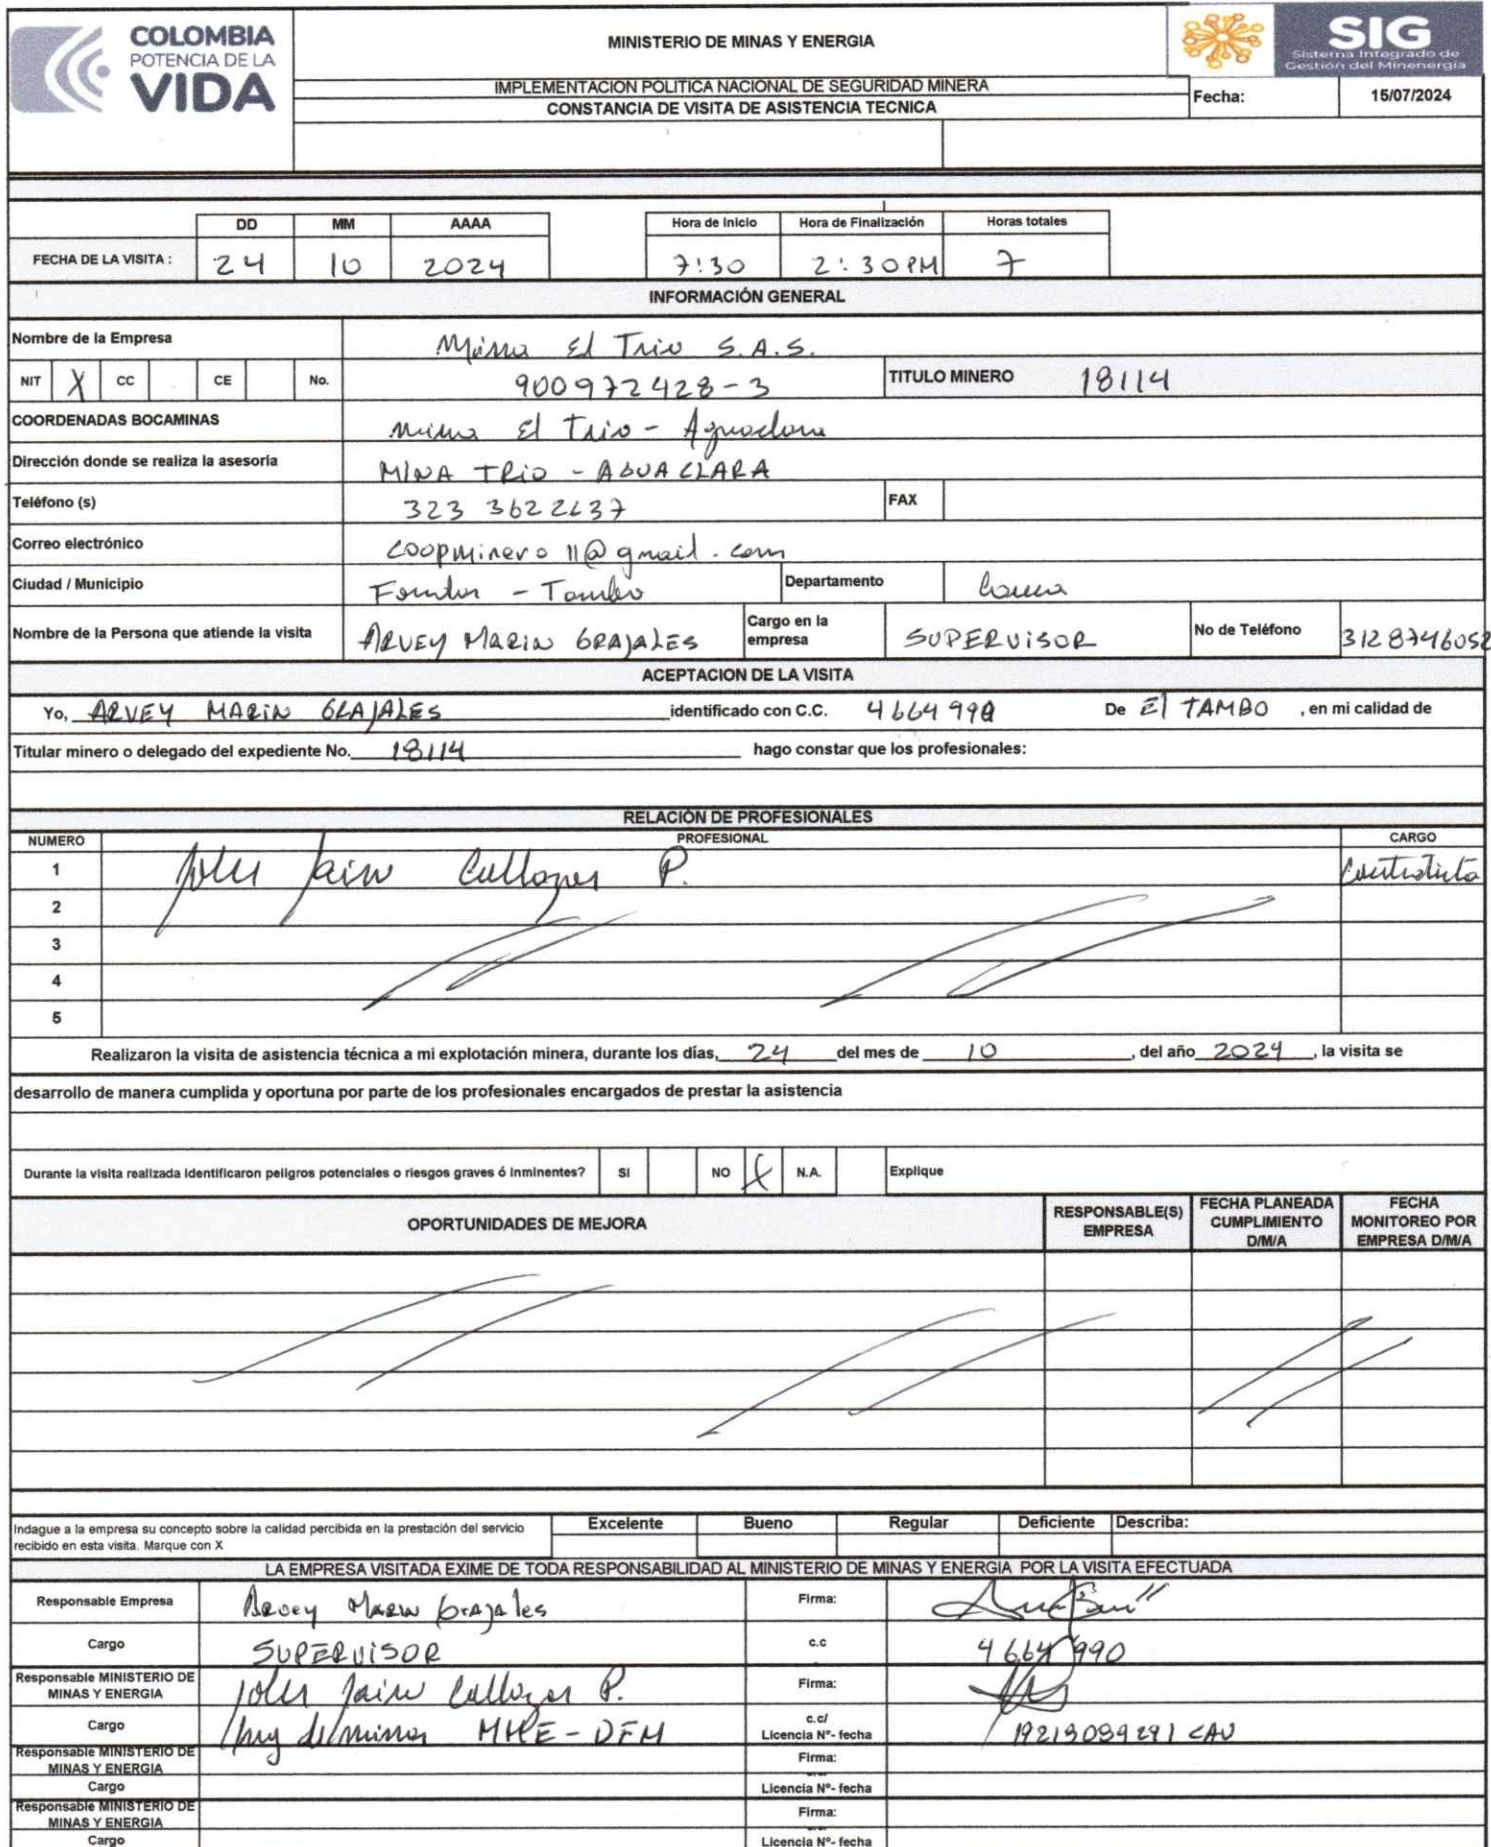 COLOMBIA
POTENCIA DE LA
VIDA
MINISTERIO DE MINAS Y ENERGIA
SIG
Sistema Integrado de
Gestión del Minenergía
IMPLEMENTACION POLITICA NACIONAL DE SEGURIDAD MINERA
CONSTANCIA DE VISITA DE ASISTENCIA TECNICA
Fecha: 15/07/2024
DD MM AAAA Hora de Inicio Hora de Finalización Horas totales
FECHA DE LA VISITA : 24 10 2024 7:30 2:30 PM 7
INFORMACIÓN GENERAL
Nombre de la Empresa Mina El Trio S.A.S.
NIT X CC CE No. 900972428-3 TITULO MINERO 18114
COORDENADAS BOCAMINAS mina El Trio - Aguaclara
Dirección donde se realiza la asesoria MINA TRIO - AGUA CLARA
Teléfono (s) 323 3622637 FAX
Correo electrónico coopminero11@gmail.com
Ciudad / Municipio - Tambo Departamento Cauca
Nombre de la Persona que atiende la visita ARVEY MARIN GRAJALES Cargo en la empresa SUPERVISOR No de Teléfono 3128746052
ACEPTACION DE LA VISITA
Yo, ARVEY MARIN GRAJALES identificado con C.C. 4664990 De El TAMBO , en mi calidad de
Titular minero o delegado del expediente No. 18114 hago constar que los profesionales:
RELACIÓN DE PROFESIONALES
NUMERO PROFESIONAL CARGO
1 Jairo Collazos P. Contratista
2
3
4
5
Realizaron la visita de asistencia técnica a mi explotación minera, durante los días, 24 del mes de 10 , del año 2024 , la visita se
desarrollo de manera cumplida y oportuna por parte de los profesionales encargados de prestar la asistencia
Durante la visita realizada identificaron peligros potenciales o riesgos graves ó inminentes? SI NO X N.A. Explique
OPORTUNIDADES DE MEJORA RESPONSABLE(S) EMPRESA FECHA PLANEADA CUMPLIMIENTO D/M/A FECHA MONITOREO POR EMPRESA D/M/A
Indague a la empresa su concepto sobre la calidad percibida en la prestación del servicio
recibido en esta visita. Marque con X
Excelente Bueno Regular Deficiente Describa:
LA EMPRESA VISITADA EXIME DE TODA RESPONSABILIDAD AL MINISTERIO DE MINAS Y ENERGIA POR LA VISITA EFECTUADA
Responsable Empresa Arvey Marin Grajales Firma:
Cargo SUPERVISOR c.c 4664990
Responsable MINISTERIO DE MINAS Y ENERGIA Jairo Collazos P. Firma:
Cargo Ing de minas MME - DFM c.c/ Licencia Nº- fecha 19219089291 CAU
Responsable MINISTERIO DE MINAS Y ENERGIA Firma:
Cargo Licencia Nº- fecha
Responsable MINISTERIO DE MINAS Y ENERGIA Firma:
Cargo Licencia Nº- fecha